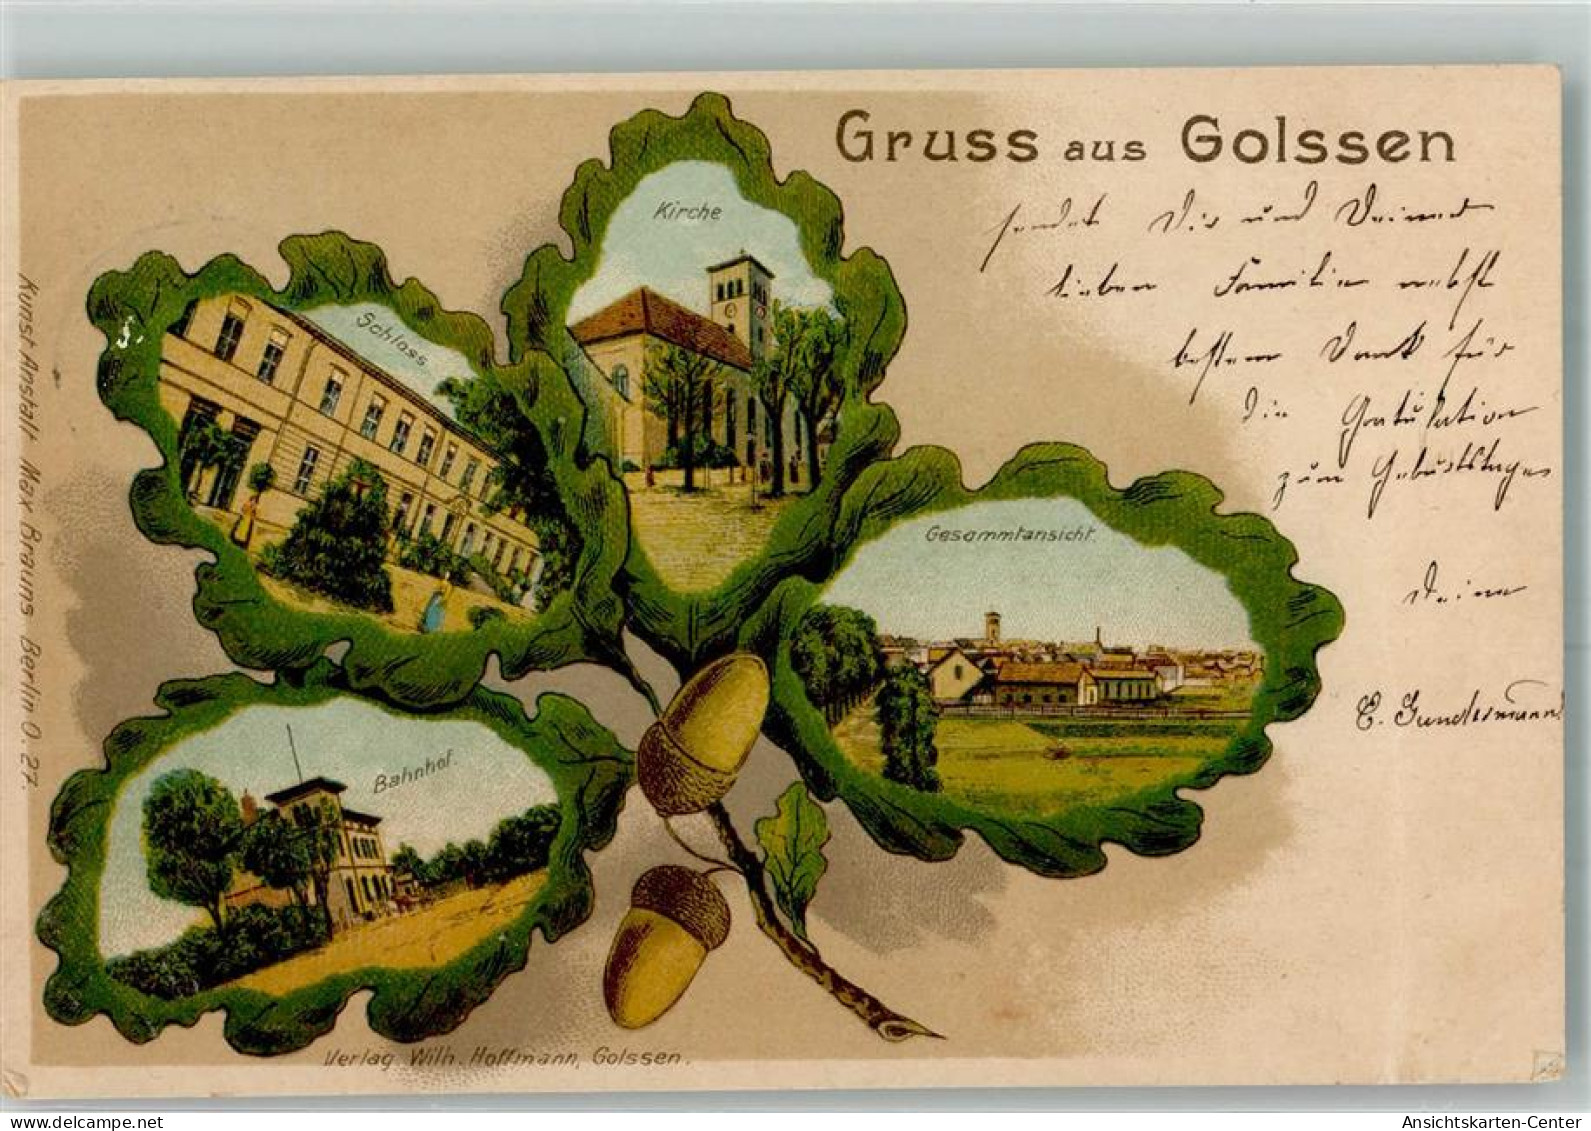 Gruss aus Golssen
sendet Dir und Deiner
lieben Familie nebst
bestem Dank für
die Gratulation
zum Geburtstage
Deine
E. Gundermann
Kirche
Schloss.
Gesammtansicht.
Bahnhof.
Kunst Anstalt Max Brauns Berlin O. 27.
Verlag Wilh. Hoffmann, Golssen.
Ansichtskarten-Center